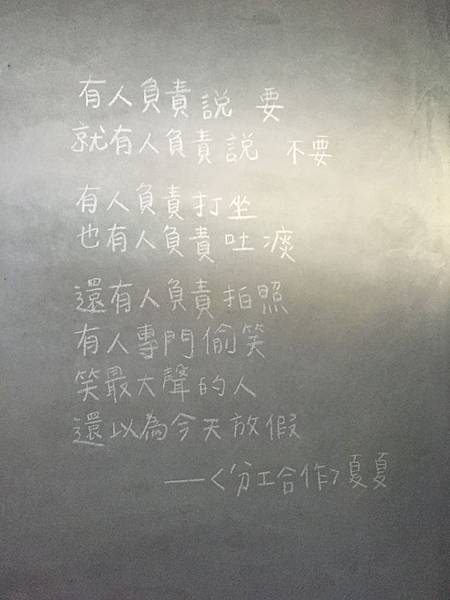 有人負責說 要
就有人負責說 不要
有人負責打坐
也有人負責吐痰
還有人負責拍照
有人專門偷笑
笑最大聲的人
還以為今天放假
——<分工合作>夏夏